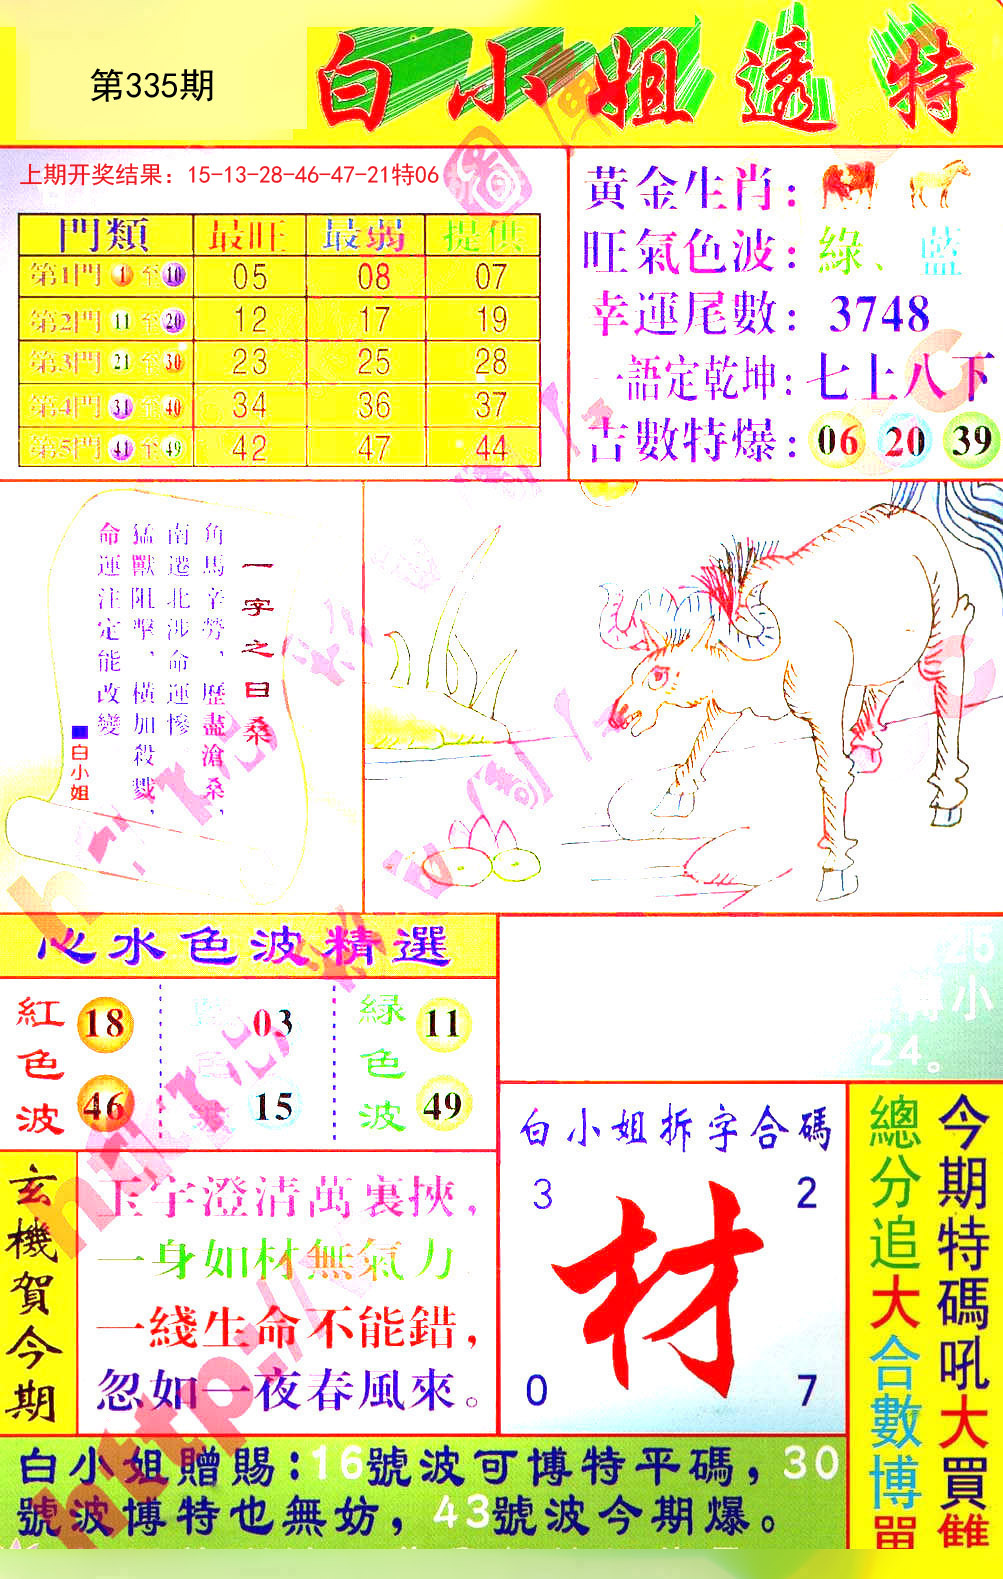 第335期
白小姐透特
上期开奖结果：15-13-28-46-47-21特06
門類 最旺 最弱 提供
第1門 1 至 10 05 08 07
第2門 11 至 20 12 17 19
第3門 21 至 30 23 25 28
第4門 31 至 40 34 36 37
第5門 41 至 49 42 47 44
黃金生肖：
旺氣色波：綠、藍
幸運尾數：3748
一語定乾坤：七上八下
吉數特爆：06 20 39
一字之曰桑
角馬辛勞，歷盡滄桑，
南遷北涉命運慘。
猛獸阻擊、橫加殺戮，
命運注定能改變
■白小姐
心水色波精選
紅色波 18 46
藍色波 03 15
緑色波 11 49
25
博小
24。
白小姐拆字合碼
3 2
材
0 7
今期特碼吼大買雙
總分追大合數博單
玄機賀今期
玉宇澄清萬裏挾，
一身如材無氣力
一綫生命不能錯，
忽如一夜春風來。
白小姐贈賜：16號波可博特平碼，30
號波博特也無妨，43號波今期爆。